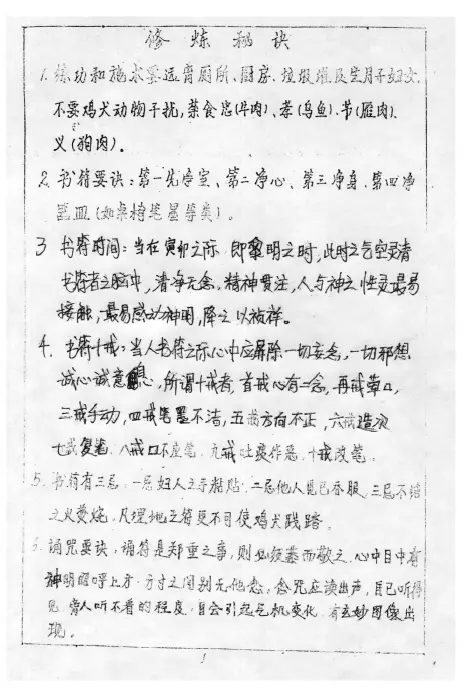 修炼秘诀
1. 练功和施术要远离厕所、厨房、垃圾堆及坐月子妇女,
不要鸡犬动物干扰,禁食忠(牛肉)、孝(乌鱼)、节(雁肉)、
义(狗肉)。
2. 书符要诀:第一先净室、第二净心、第三净身、第四净
器皿(如桌椅笔墨等类)。
3 书符时间:当在寅卯之际 即黎明之时,此时之气空灵清
书符者之脑中,清净无念,精神贯注,人与神之性灵最易
接触,最易感动神明,降之以祯祥。
4. 书符十戒:当人书符之际心中应屏除一切妄念,一切邪想
诚心诚意 息心,所谓十戒者,首戒心有二念,再戒荤口,
三戒手动,四戒笔墨不洁,五戒方向不正,六戒造次
七戒复笔 八戒口不应笔 九戒吐痰作恶 十戒改笔。
5. 书符有三忌,一忌妇人之手黏贴 二忌他人见已吞服 三忌不洁
之火焚烧,凡埋地之符更不可使鸡犬践踏。
6. 诵咒要诀,诵符是郑重之事,则必须恭而敬之,心中目中有
神明昭呼上方 方寸之间别无他念,念咒应读出声,自已听得
见 旁人听不着的程度,自会引起气机变化 有玄妙图像出
现。
1